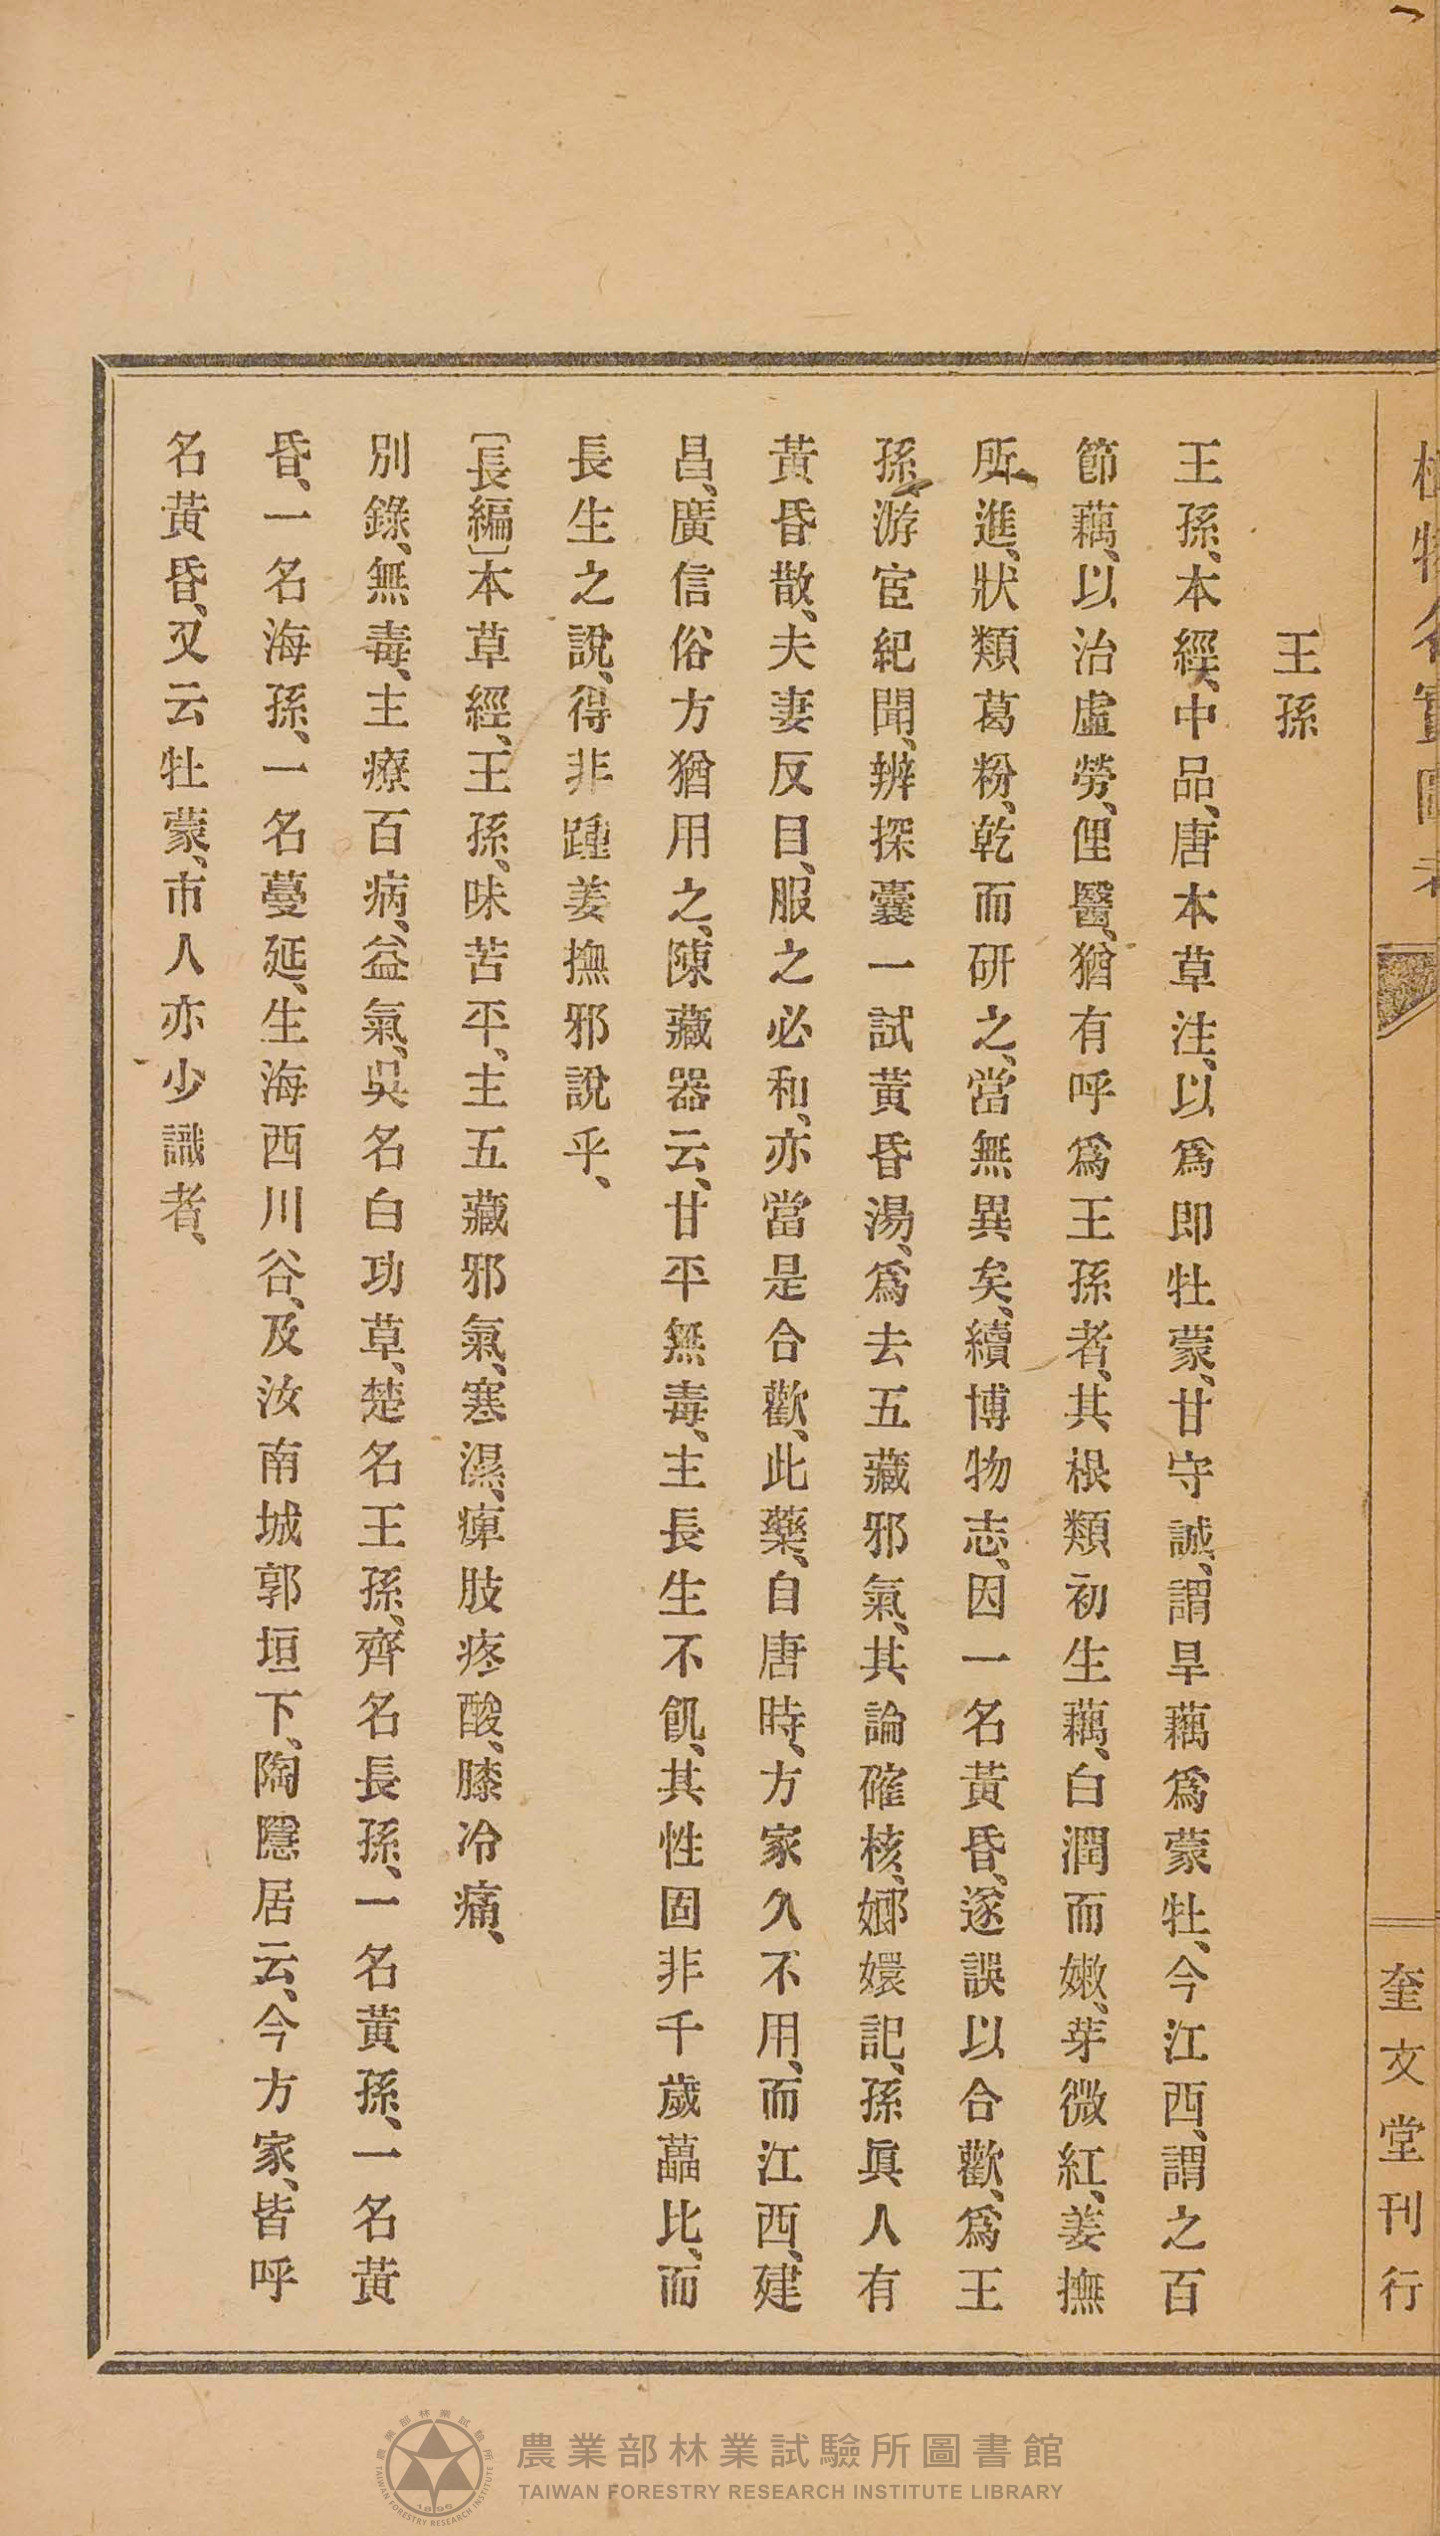 植物名實圖考
奎文堂刊行
王孫
王孫、本經、中品、唐本草注、以爲即牡蒙、甘守誠、謂旱藕爲蒙牡、今江西、謂之百
節藕、以治虛勞、俚醫、猶有呼爲王孫者、其根類初生藕、白潤而嫩、芽微紅、姜撫
所進、狀類葛粉、乾而研之、當無異矣、續博物志、因一名黃昏、遂誤以合歡、爲王
孫、游宦紀聞、辨探囊一試黃昏湯、爲去五藏邪氣、其論確核、嫏嬛記、孫眞人有
黃昏散、夫妻反目、服之必和、亦當是合歡、此藥、自唐時、方家久不用、而江西、建
昌、廣信俗方猶用之、陳藏器云、甘平無毒、主長生不飢、其性固非千歲藟比、而
長生之說、得非踵姜撫邪說乎、
〔長編〕本草經、王孫、味苦平、主五藏邪氣、寒濕、痺肢疼酸、膝冷痛、
別錄、無毒、主療百病、益氣、吳名白功草、楚名王孫、齊名長孫、一名黃孫、一名黃
昏、一名海孫、一名蔓延、生海西川谷、及汝南城郭垣下、陶隱居云、今方家、皆呼
名黃昏、又云牡蒙、市人亦少識者、
農業部林業試驗所圖書館
TAIWAN FORESTRY RESEARCH INSTITUTE LIBRARY
農業部林業試驗所
TAIWAN FORESTRY RESEARCH INSTITUTE
1895